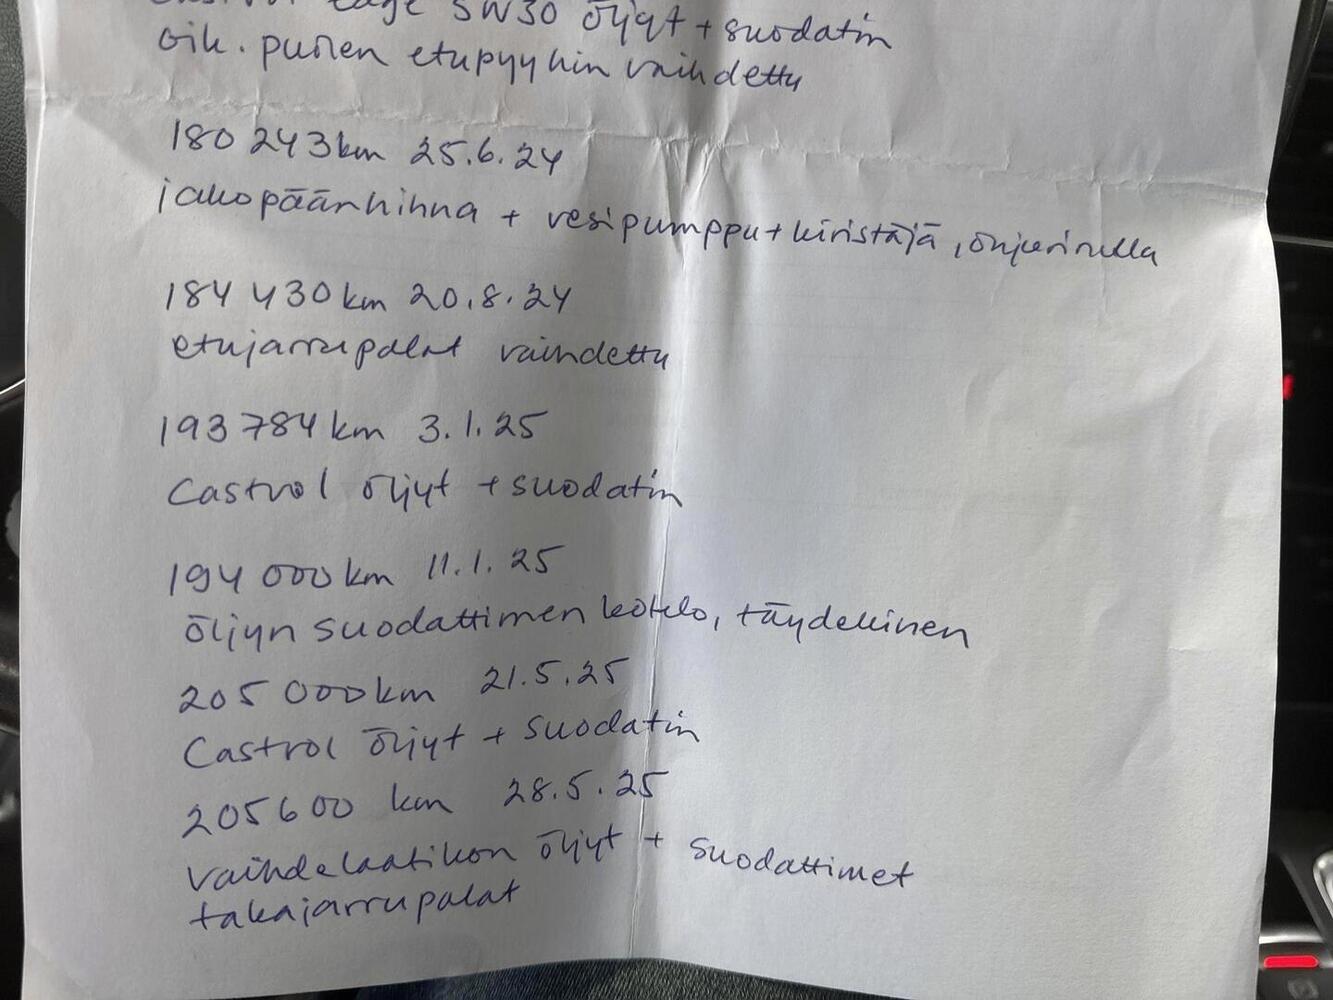 edge 5W30 öljyt + suodatin
oik. puolen etupyyhin vaihdettu
180 243km 25.6.24
jakopäänhihna + vesipumppu + kiristäjä, ohjurirulla
184 430km 20.8.24
etujarrupalat vaihdettu
193 784km 3.1.25
Castrol öljyt + suodatin
194 000km 11.1.25
öljyn suodattimen kotelo, täydellinen
205 000km 21.5.25
Castrol öljyt + suodatin
205600 km 28.5.25
vaihdelaatikon öljyt + suodattimet
takajarrupalat